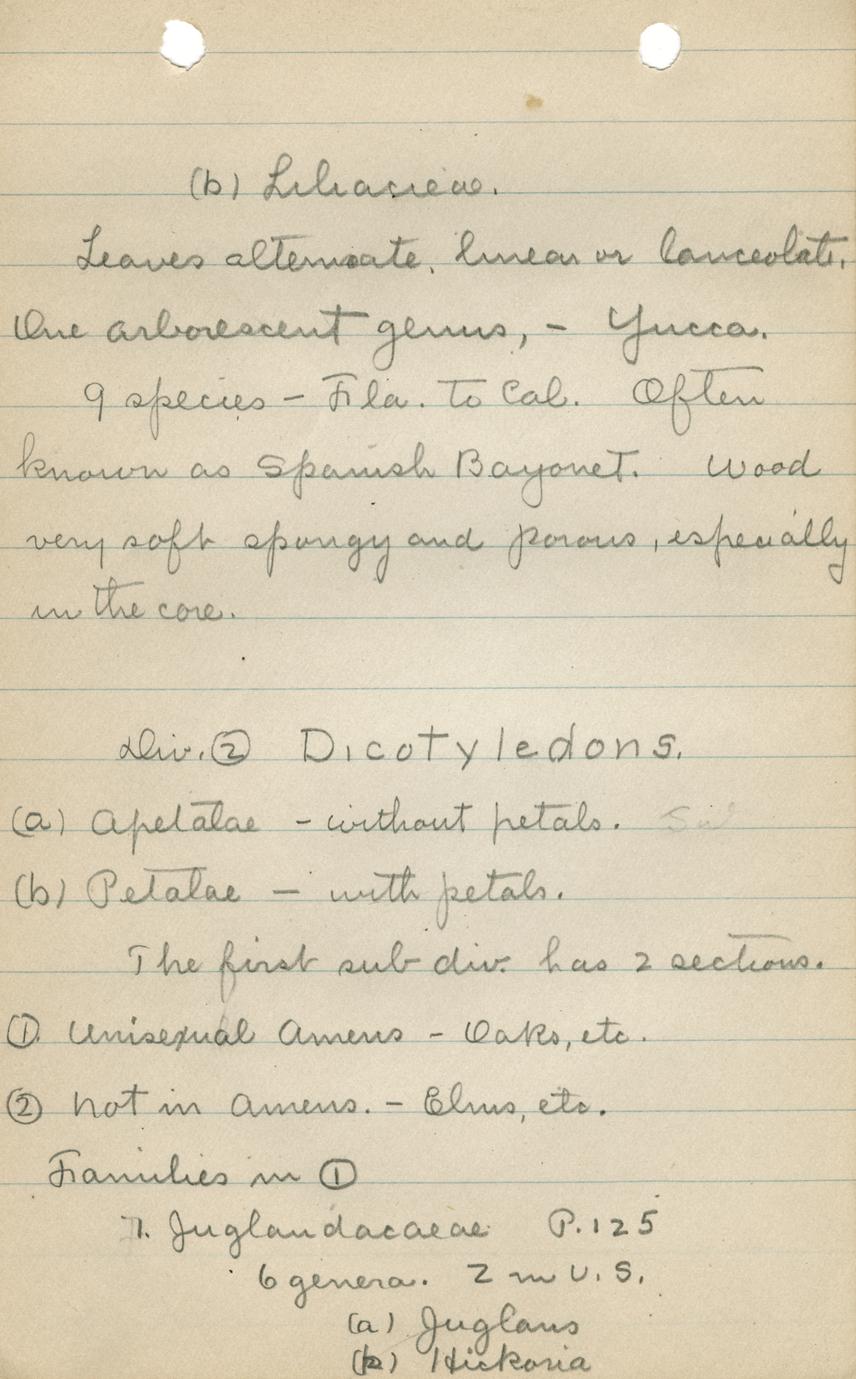 (b) Liliaceae.
Leaves alternate, linear or lanceolate.
One arborescent genus, - Yucca.
9 species - Fla. to Cal. Often
known as Spanish Bayonet. Wood
very soft spongy and porous, especially
in the core.
Div. ② Dicotyledons.
(a) Apetalae - without petals.
(b) Petalae - with petals.
The first sub div. has 2 sections.
① Unisexual Amens - Oaks, etc.
② Not in Amens. - Elms, etc.
Families in ①
1. Juglandacaeae P. 125
6 genera. 2 in U.S.
(a) Juglans
(b) Hickoria